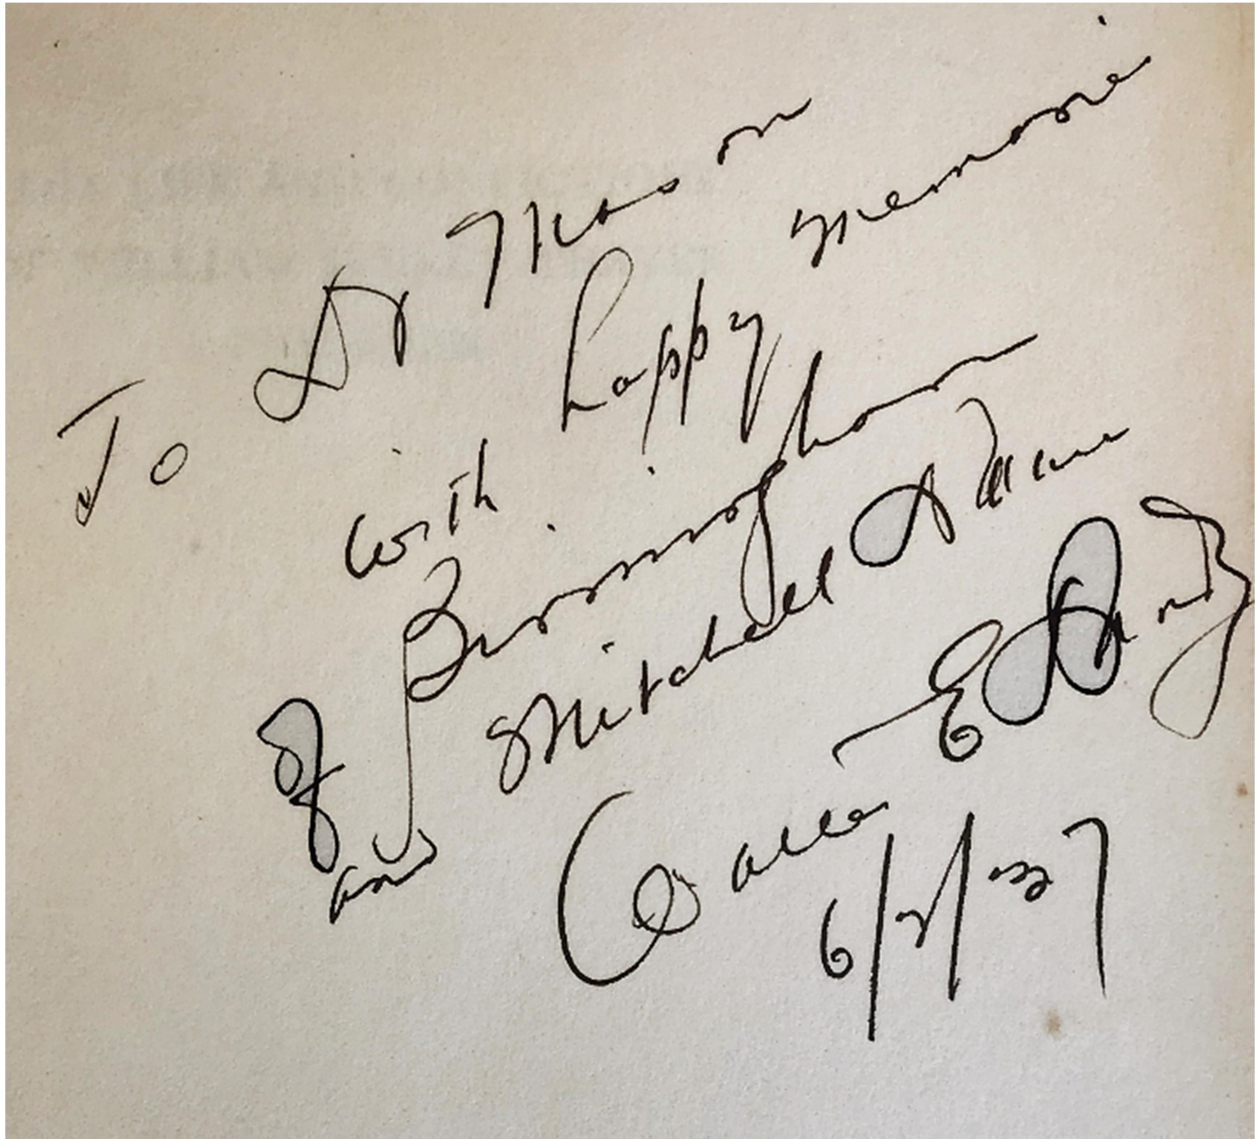 To Dr Mason
with happy memorie
of Birmingham
and Mitchell
Walter E Dandy
6/2/37